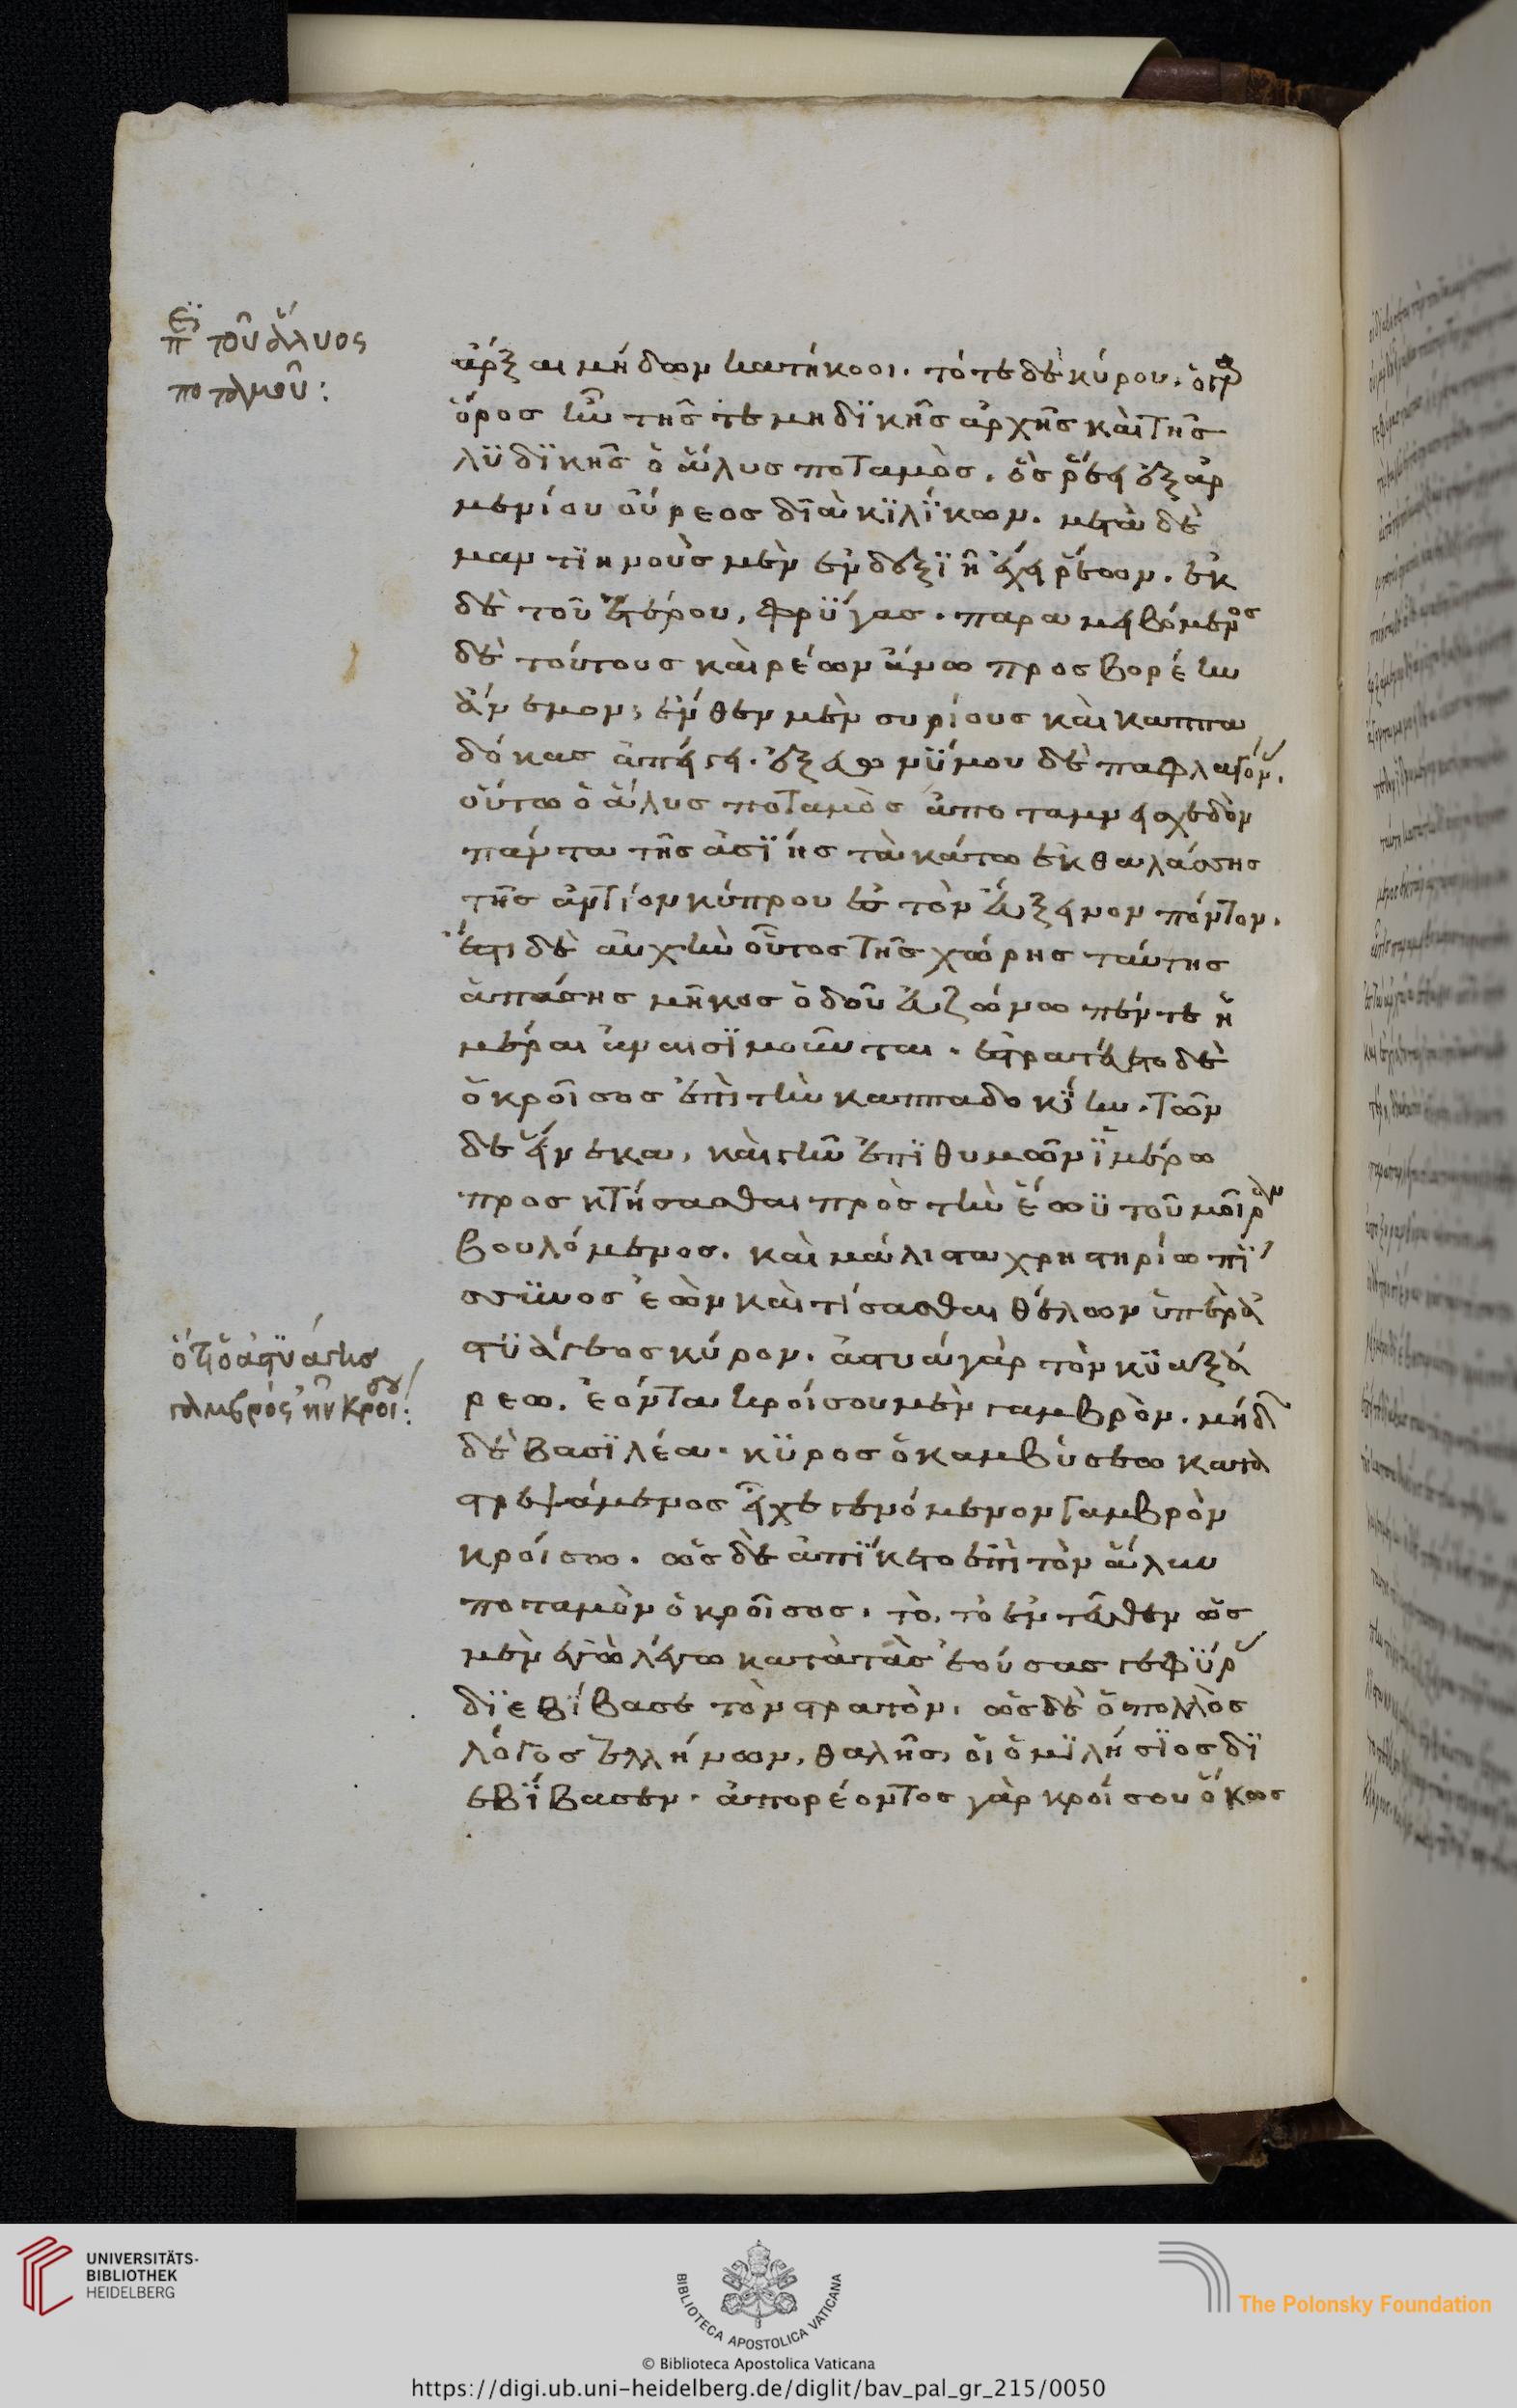 περὶ τοῦ ἅλυος
ποταμοῦ:
ἄρξαι μήδων κατήκοοι. τότε δὲ κύρου. ὁ γὰρ
ὅρος ἦν τῆς τε μηδϊκῆς ἀρχῆς καὶ τῆς
λϋδϊκῆς ὁ ἅλυς ποταμὸς. ὃς ῥέει ἐξ ἀρ
μενίου οὔρεος δϊὰ κϊλϊκων. μετὰ δὲ
μαντϊηνοὺς μὲν ἐν δεξϊῆ ἔχει ῥέων. ἐκ
δὲ τοῦ ἑτέρου, φρϋγας. παραμειβόμενος
δὲ τούτους καὶ ῥέων ἄνω προς βορέην
ἄνεμον; ἔνθεν μὲν συρίους καὶ καππα
δόκας ἀπέργει. ἐξ εὐωνϋμου δὲ παφλαγόν.
οὕτω ὁ ἅλυς ποταμὸς ἀποταμνει σχεδὸν
πάντα τῆς ἀσϊης τὰ κάτω ἐκ θαλάσσης
τῆς ἀντίον κύπρου ἐς τὸν εὔξεινον πόντον.
ἔστι δὲ αὐχὴν οὗτος τῆς χώρης ταύτης
ἁπάσης μῆκος ὁδοῦ εὐζώνω πέντε ἡ
μέραι ἀναισϊμοῦνται. ἐστρατεύετο δὲ
ὁ κροῖσος ἐπὶ τὴν καππαδοκϊην. τῶν
δε εἵνεκα, καὶ γῆν ἐπϊθυμῶν ϊμέρω
προσκτήσασθαι πρὸς τὴν ἑωϋτοῦ μοῖραν
βουλόμενος. καὶ μάλιστα χρηστηρίω πϊ
σσϋνος ἐὼν καὶ τίσασθαι θέλων ὑπὲρ ἀ
στϋάγεος κύρον. ἀστυάγὰρ τὸν κϋαξά
ὅτι ὁ ἀστϋάγης
γαμβρός ἦν κροίσου:
ρεω. ἐόντα κροίσου μὲν γαμβρὸν. μήδων
δὲ βασϊλέα. κῦρος ὁ καμβύσεω κατα
στρεψάμενος εἶχε γενόμενον γαμβρὸν
κροίσω. ὧδε ἀπϊκετο ἐπὶ τὸν ἅλυν
ποταμὸν ὁ κροῖσος. τὸ, τὸ ἐνταῦθεν ὡς
μὲν ἐγὼ λέγω κατὰ τὰς ἐούσας γεφϋρας
δϊεβίβασε τὸν στρατὸν. ὡς δὲ ὁ πολλὸς
λόγος ἑλλήνων, θαλῆς οἱ ὁ μϊλήσϊος δϊ
εβϊβασεν. ἀπορέοντος γὰρ κροίσου ὅκως
UNIVERSITÄTS-
BIBLIOTHEK
HEIDELBERG
BIBLIOTECA APOSTOLICA VATICANA
The Polonsky Foundation
© Biblioteca Apostolica Vaticana
https://digi.ub.uni-heidelberg.de/diglit/bav_pal_gr_215/0050